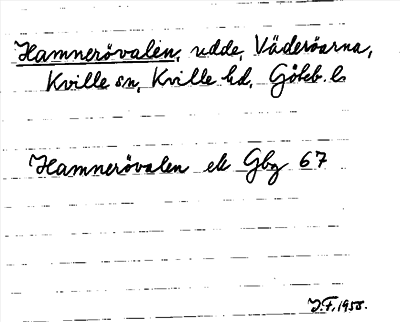 Hamnerövalen, udde, Väderöarna,
Kville sn, Kville hd, Göteb. l.
Hamnerövalen ek Gbg 67
J.F. 1958.